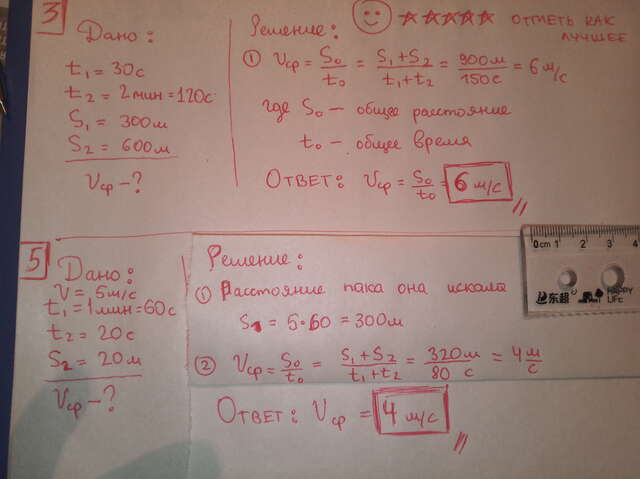 3
Дано:
t₁ = 30с
t₂ = 2мин = 120с
S₁ = 300м
S₂ = 600м
Vср - ?
Решение:
ОТМЕТЬ КАК
ЛУЧШЕЕ
① Vср = S₀/t₀ = S₁+S₂/t₁+t₂ = 900м/150с = 6 м/с
где S₀ — общее расстояние
t₀ — общее время
Ответ: Vср = S₀/t₀ = 6 м/с
5
Дано:
V = 5м/с
t₁ = 1мин = 60с
t₂ = 20с
S₂ = 20м
Vср - ?
Решение:
① Расстояние пака она искала
S₁ = 5·60 = 300м
② Vср = S₀/t₀ = S₁+S₂/t₁+t₂ = 320м/80 с = 4 м/с
Ответ: Vср = 4 м/с
0cm 1 2 3 4
东超
HAPPY
LIFE